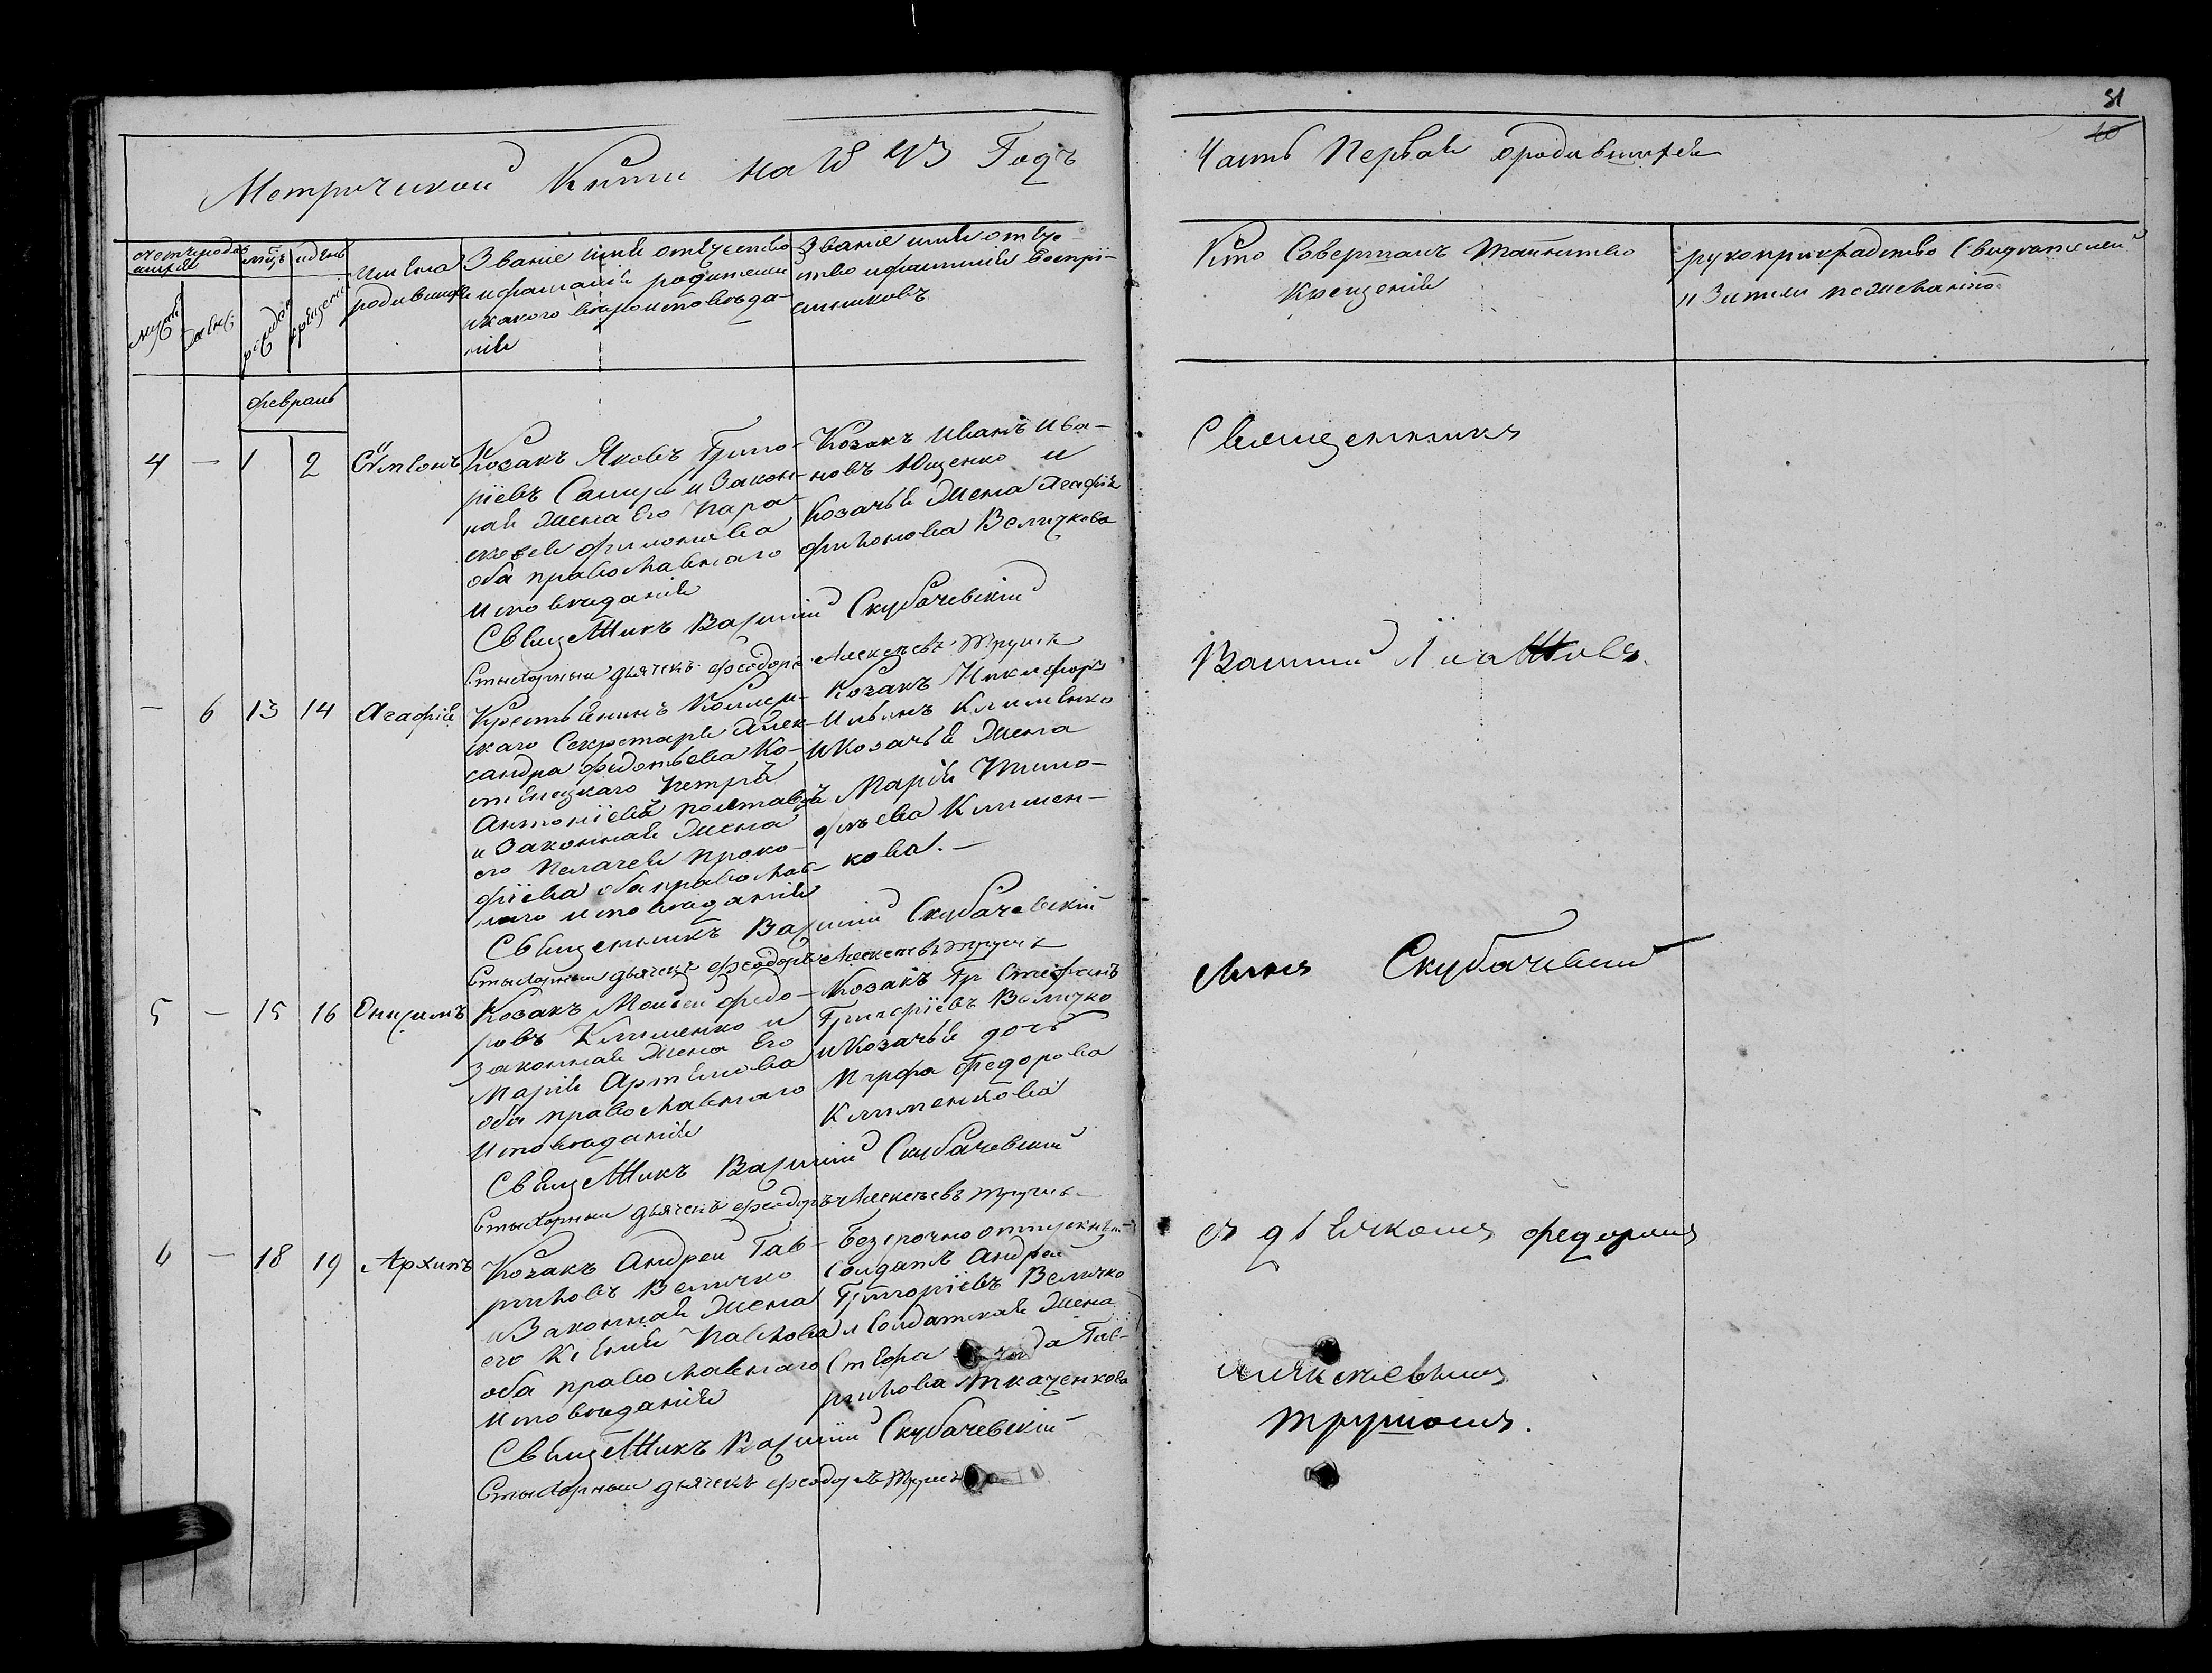 31
10
Метрической Книги на 18 43 Годъ
Часть Первая о родившихся
счетъ родившихся
мужеска
женс:
мѣсяцъ и день
рожденія
крещенія
Имена родившихся
Званіе имя отечество
и фамилія родителей
и какого вѣроисповѣда-
нія
Званіе имя отече-
ство и фамилія воспрі-
емниковъ
Кто Совершалъ таинство
Крещенія
рукоприкладство свидѣтелей
Февраль
4 — 1 2 Сѵмеонъ
Козакъ Яковъ Григо-
ріевъ и Закон-
ная жена Его Пара-
скева Филонова
оба православнаго
исповѣданія
Козакъ Иванъ Ива-
новъ Ющенко и
Козачья жена Агафія
Величкова
Священникъ Василій Скубачевскій
Стихарный дьячекъ Феодоръ Алексѣевъ Трушъ
— 6 13 14 Агафія
Крестьянинъ Коллеж-
скаго Секретаря Алек-
сандра Федотьева Ко-
Петръ
Антоніевъ
и Законная жена
его Пелагея Проко-
фіева оба православ-
наго исповѣданія
Козакъ Никифоръ
Ильинъ Клименко
и Козачья жена
Марія Тимо-
фѣева Климен-
кова.—
Священникъ Василій Скубачевскій
Стихарный дьячекъ Феодоръ Алексѣевъ Трушъ
5 — 15 16 Онисимъ
Козакъ Моисей Федо-
ровъ Клименко и
Законная жена Его
Марія Артемова
оба православнаго
исповѣданія
Козакъ Гр Стефанъ
Григоріевъ Величко
и Козачья дочь
Марфа Федорова
Клименкова
Священникъ Василій Скубачевскій
Стихарный дьячекъ Феодоръ Алексѣевъ Трушъ
6 — 18 19 Архипъ
Козакъ Андрей Гав-
риловъ Величко
и Законная жена
его Ксенія Павлова
оба православнаго
исповѣданія
Безсрочно отпускный
Солдатъ Андрей
Григоріевъ Величко
и Солдатская жена
Гав-
рилова Ткаченкова
Священникъ Василій Скубачевскій
Стихарный дьячекъ Феодоръ Трушъ
Священникъ
Василій
Скубачевскій
съ дьячкомъ Федоромъ
Алексѣевымъ
Трушомъ.